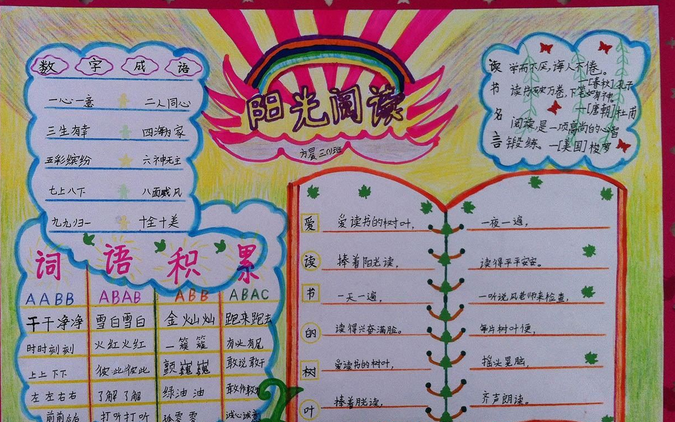 阳光阅读
方晨 三(1)班
数字成语
一心一意 二人同心
三生有幸 四海为家
五彩缤纷 六神无主
七上八下 八面威风
九九归一 十全十美
读书名言
学而不厌,诲人不倦。
—[春秋]孔子
读书破万卷,下笔如有神。
—[唐朝]杜甫
阅读是一项高尚的心智
锻练。—[美国]梭罗
词语积累
AABB ABAB ABB ABAC
干干净净 雪白雪白 金灿灿 跑来跑去
时时刻刻 火红火红 一簇簇 有头有尾
上上下下 彼此彼此 颤巍巍 敢说敢干
左左右右 了解了解 绿油油
前前后后 打听打听 诚心诚意
爱读书的树叶
爱读书的树叶, 一夜一遍,
捧着阳光读, 读得平平安安。
一天一遍, 一听说风老师来检查,
读得兴奋满脸。 每片树叶便,
爱读书的树叶, 摇头晃脑,
捧着脱读, 齐声朗读。